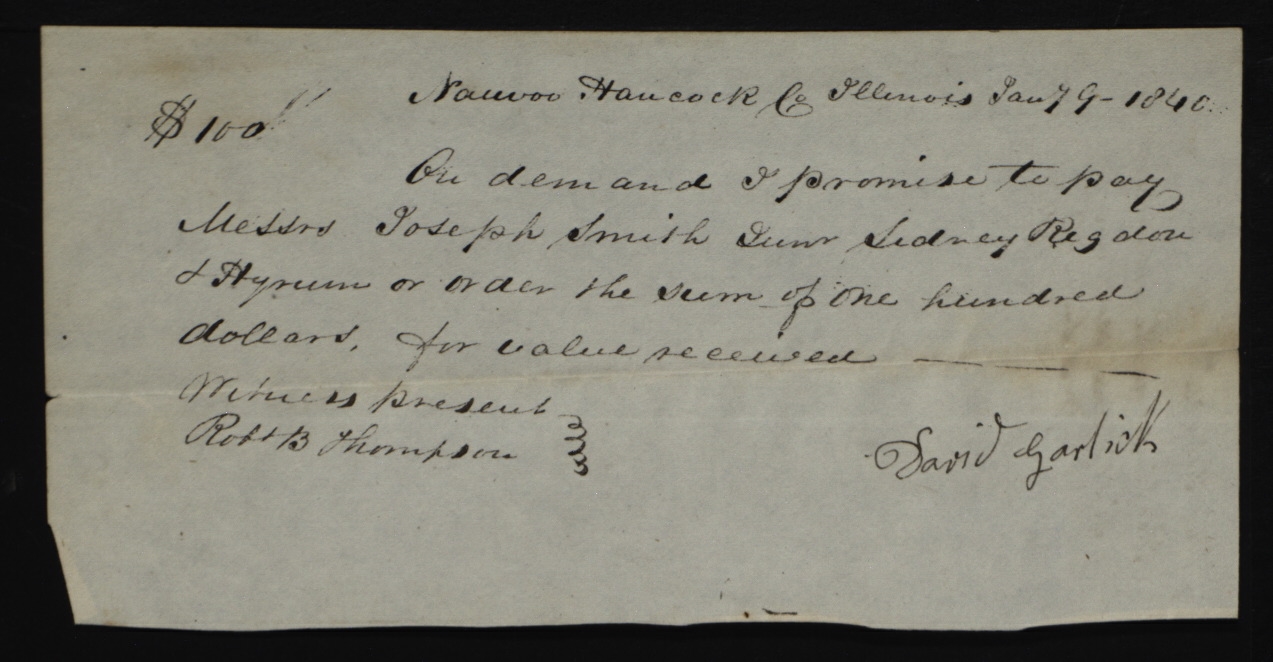 Nauvoo Hancock Co Illinois Jany 9 - 1840
$100
On demand I promise to pay
Messrs Joseph Smith Junr Sidney Rigdon
& Hyrum or order the sum of One hundred
dollars, for value received
Witness present
Robt B Thompson
David Garlick